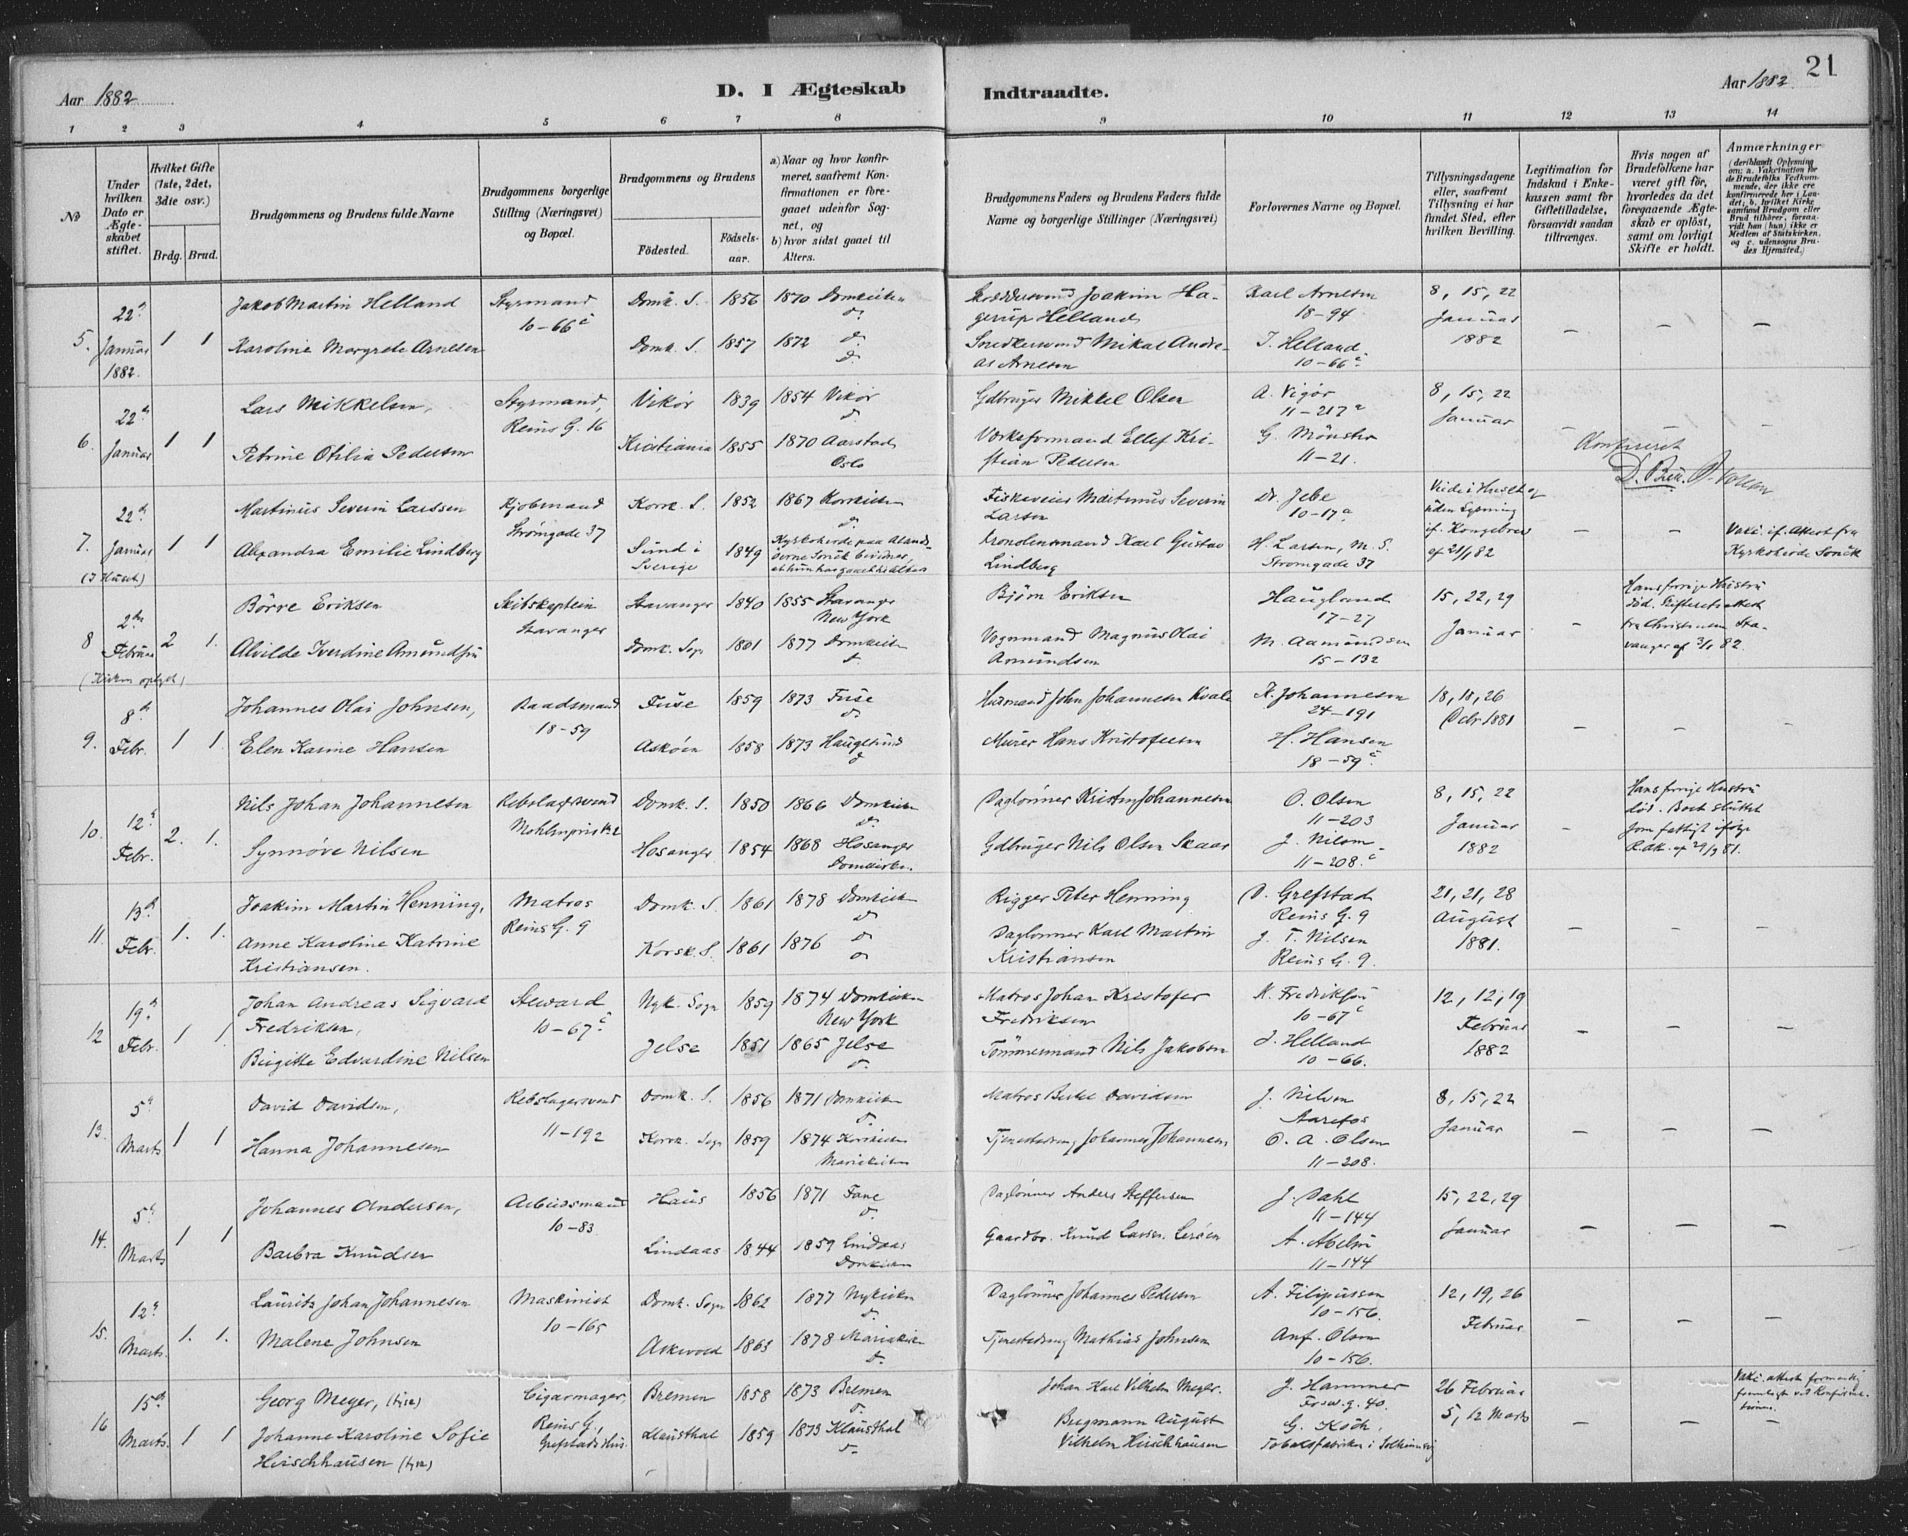 Aar 1882
D. I Ægteskab
Indtraadte.
Aar 1882
21
1 2 3 4 5 6 7 8 9 10 11 12 13 14
No
Under hvilken Dato er Ægteskabet stiftet.
Hvilket Gifte (1ste, 2det, 3die osv.)
Brdg. Brud.
Brudgommens og Brudens fulde Navne
Brudgommens borgerlige Stilling (Næringsvei) og Bopæl.
Brudgommens og Brudens
Födested.
Födselsaar.
a) Naar og hvor konfirmeret, saafremt Konfirmationen er foregaaet udenfor Sognet, og
b) hvor sidst gaaet til Alters.
Brudgommens Faders og Brudens Faders fulde Navne og borgerlige Stillinger (Næringsvei)
Forlovernes Navne og Bopæl.
Tillysningsdagene eller, saafremt Tillysning ei har fundet Sted, efter hvilken Bevilling.
Legitimation for Indskud i Enkekassen samt for Giftetilladelse, forsaavidt saadan tiltrænges.
Hvis nogen af Brudefolkene har været gift för, hvorledes da det foregaaende Ægteskab er oplöst, samt om lovligt Skifte er holdt.
Anmærkninger
(deriblandt Oplysning om: a. Vakcination for de Brudefolks Vedkommende, der ikke ere konfirmerede her i Landet; b. hvilket Kirkesamfund Brudgom eller Brud tilhörer, forsaavidt han (hun) ikke er Medlem af Statskirken, og c. udensogns Brudes Hjemsted.)
5. 22d Januar 1882. 1 1
Jakob Martin Helland
Styrmand 10-66c
Domk. S. 1856 1870 Domkirken do
Skræddersvend Joakim Hagerup Helland
Karl Arnesen 18-94
8, 15, 22 Januar 1882
Karoline Margrete Arnesen
Domk. S. 1857 1872 do do
Snedkersvend Mikal Andreas Arnesen
J. Helland 10-66c
6. 22d Januar 1 1
Lars Mikkelsen,
Styrmand, Reins G. 16
Vikör 1839 1854 Vikör do
Gdbruger Mikkel Olsen
A. Vigör 11-217a
8, 15, 22 Januar
Petrine Otilia Pedersen
Kristiania 1855 1870 Aarstad Oslo
Værksformand Ellef Kristian Pedersen
G. Mönster 11-21.
Konfereret
7. 22d Januar (I Huset) 1 1
Martinus Severin Larssen
Kjöbmand Strömgade 37
Korsk. S. 1852 1867 Korskirken do
Fiskeveier Martinus Severin Larsen
Dr. Jebe 10-17a
Viede i Huset og uden Lysning if. Kongebrev af 21/1 82
Alexandra Emilie Lindberg
Sund i Sverige 1849
Kronolensmand Karl Gustav Lindberg
H. Larsen, M. S. Strömgade 37
Vakc. if. Attest fra Kyrkoherde
8 2den Februar (Kirken oplyst) 2 1.
Börre Eriksen
Skibskaptein Stavanger
Stavanger 1840 1855 Stavanger New York
Björn Eriksen
Haugland 17-27
15, 22, 29 Januar
Hans forrige Hustru död. Skifteretsattest fra Christensen Stavanger af 3/1 82.
Alvilde Iverdine Amundsen
Domk. Sogn 1801 1877 Domkirken do
Vognmand Magnus Olai Amundsen
M. Aamundsen 15-132
9. 8d Febr. 1 1.
Johannes Olai Johnsen,
Baadsmand 18-59
Fuse 1859 1873 Fuse do
Husmand John Johannesen Kvale
K. Johannesen 24-191
18, 18, 26 Debr 1881
Elen Karine Hansen
Asköen 1858 1873 Haugesund do
Murer Hans Kristofersen
H. Hansen 18-59c.
10. 12d Febr. 2. 1.
Nils Johan Johannesen
Rebslagersvend
Domk. S. 1850 1866 Domkirken do
Daglönner Kristen Johannesen
O. Olsen 11-203
8, 15, 22 Januar 1882
Hans forrige Hustru död. Boet sluttet som fattigt ifölge
Synnöve Nilsen
Hosanger 1854 1868 Hosanger Domkirken.
Gdbruger Nils Olsen Skaar
J. Nilsen 11-208.c
11. 13d Febr. 1. 1.
Joakim Martin Henning,
Matros Reins G. 9
Domk. S. 1861 1878 Domkirken do
Rigger Peter Henning
D. Grefstad Reins G. 9
21, 21, 28 August 1881.
Anne Karoline Katrine Kristiansen.
Korsk. S. 1861 1876 do do
Daglönner Karl Martin Kristiansen
J. T. Nilsen Reins G. 9.
12 19d Febr. 1 1.
Johan Andreas Sigvard Fredriksen,
Steward 10-67c
Nyk. Sogn 1859 1874 Domkirken New York
Matros Johan Kristofer Fredriksen
K. Fredriksen 10-67c
12, 12, 19 Februar 1882
Birgitte Edvardine Nilsen
Jelse 1851 1865 Jelse do
Tömmermand Nils Jakobsen
J. Helland 10-66.
13. 5d Marts 1 1
David Davidsen,
Rebslagersvend 11-192
Domk. S. 1856 1871 Domkirken do
Matros Bertel Davidsen
J. Nilsen
8, 15, 22 Januar
Hanna Johannesen
Korsk. Sogn 1859 1874 Korskirken Mariekirken
Tjenestedreng Johannes Johannesen
O. A. Olsen 11-208.
14. 5d Marts 1 1
Johannes Andersen,
Arbeidsmand 10-83
Haus 1856 1871 Fane do
Daglönner Anders Steffensen
J. Dahl 11-144
15, 22, 29 Januar
Barbra Knudsen
Lindaas 1844 1859 Lindaas Domkirken
Gaardbr. Knud Larsen Leröen
A. Abelsen 11-144
15. 12d Marts. 1. 1.
Lauritz Johan Johannesen
Maskinist 10-165
Domk. Sogn 1862 1877 Nykirken do
Daglönner Johannes Pedersen
A. Filipussen 10-156.
12, 19, 26 Februar
Malene Johnsen
Askevold 1863 1878 Mariakirken do
Tjenestedreng Mathias Johnsen
Anf. Olsen 10-156.
16 15d Marts. 1 1
Georg Meyer,
Cigarmager, Reins G., Grefstads Hus.
Bremen 1858 1873 Bremen do
Johan Karl Vilhelm Meyer.
J. Hammer
26 Februar 5, 12 Marts
Vakc. attester
Johanne Karoline Sofie Hirschhausen
Klausthal 1859 1873 Klausthal do
Bergmann August Vilhelm Hirschhausen
G. Koch, Tobaksfabriken i Solheimsvig